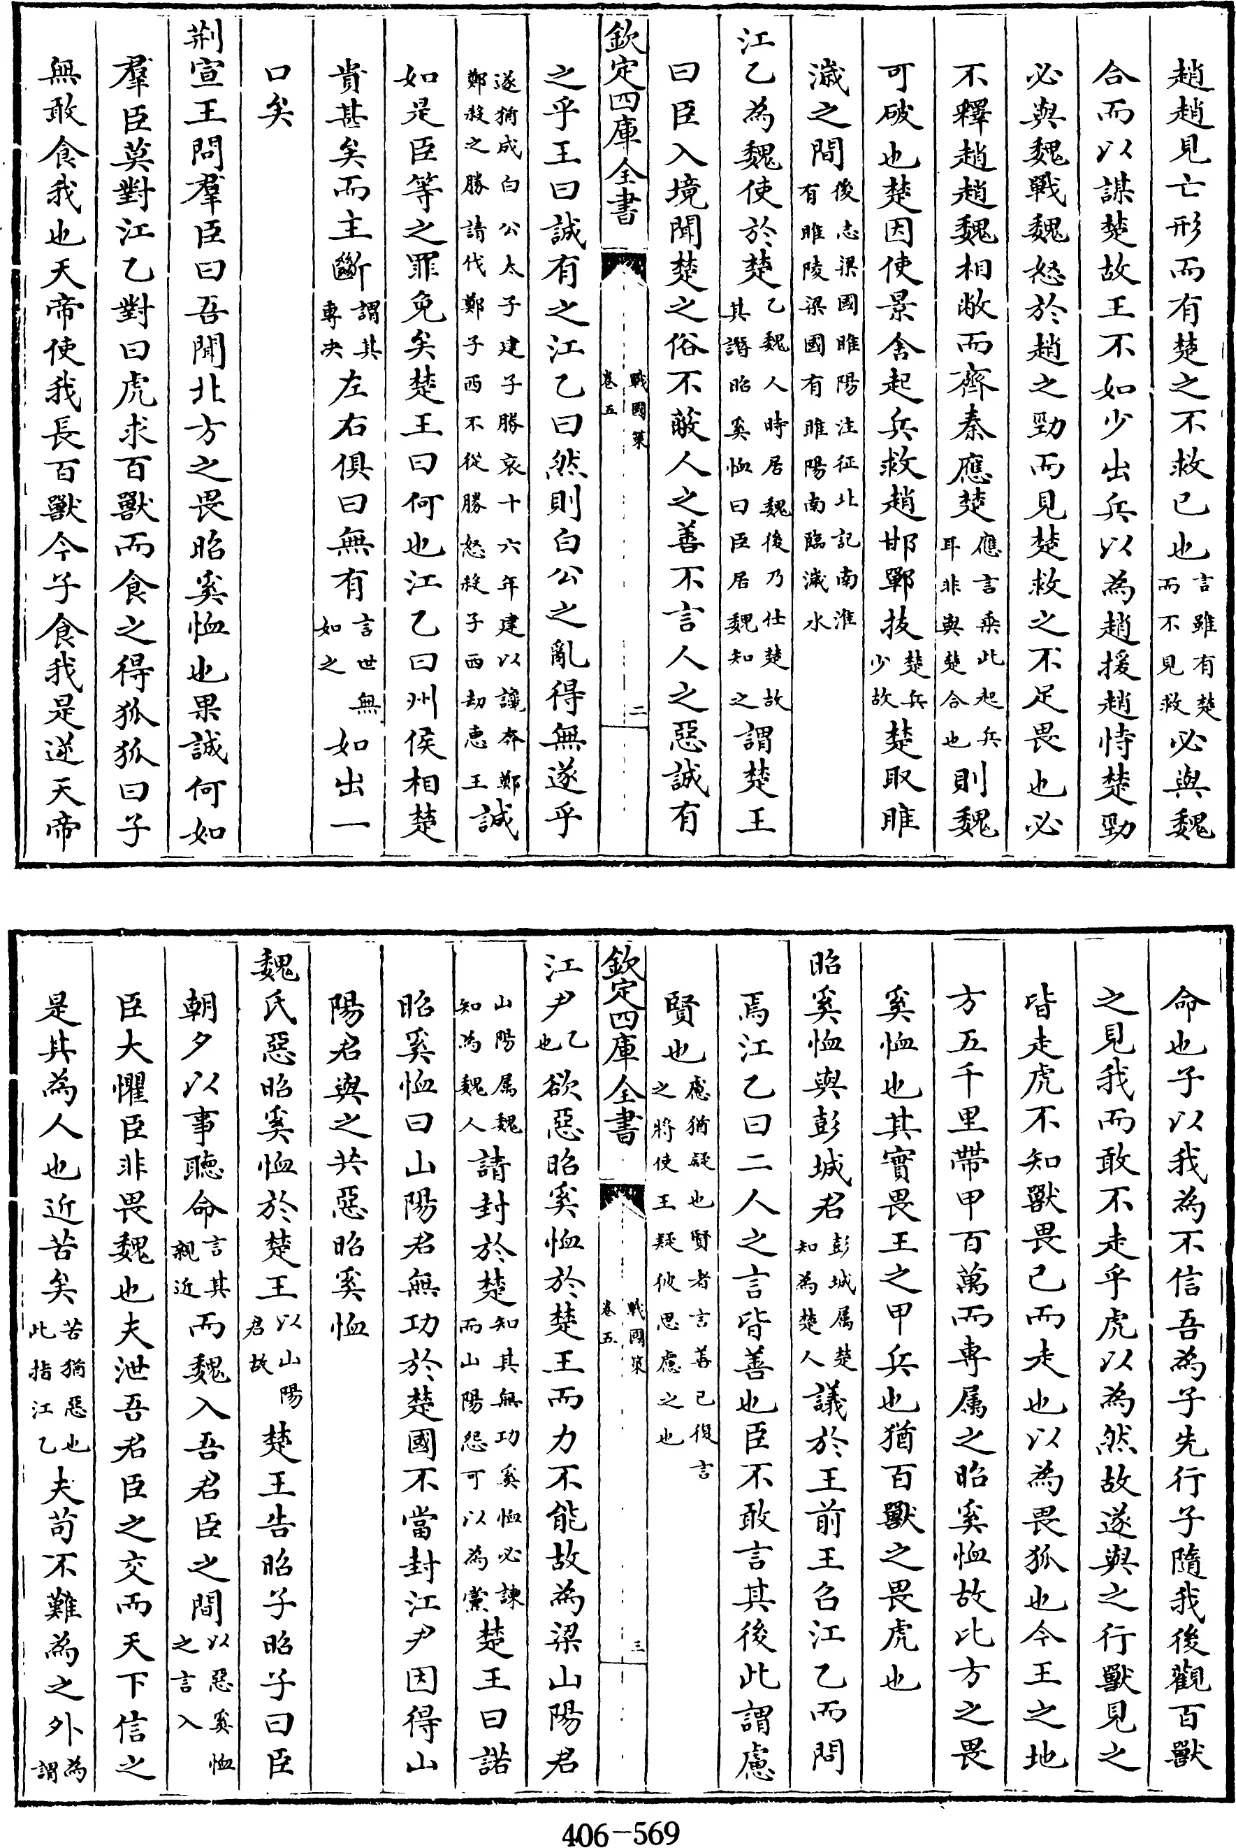 趙趙見亡形而有楚之不救已也言雖有楚而不見救必與魏
合而以謀楚故王不如少出兵以為趙援趙恃楚勁
必與魏戰魏怒於趙之勁而見楚救之不足畏也必
不釋趙趙魏相敝而齊秦應楚應言乘此起兵耳非與楚合也則魏
可破也楚因使景舍起兵救趙邯鄲拔楚兵少故楚取睢
濊之間後志梁國睢陽注征北記南淮有睢陵梁國有睢陽南臨濊水
江乙為魏使於楚乙魏人時居魏後乃仕楚故其譖昭奚恤曰臣居魏知之謂楚王
曰臣入境聞楚之俗不蔽人之善不言人之惡誠有
欽定四庫全書 戰國策卷五 二
之乎王曰誠有之江乙曰然則白公之亂得無遂乎
遂猶成白公太子建子勝哀十六年建以讒奔鄭鄭殺之勝請伐鄭子西不從勝怒殺子西劫惠王誠
如是臣等之罪免矣楚王曰何也江乙曰州侯相楚
貴甚矣而主斷謂其專決左右俱曰無有言世無如之如出一
口矣
荆宣王問羣臣曰吾聞北方之畏昭奚恤也果誠何如
羣臣莫對江乙對曰虎求百獸而食之得狐狐曰子
無敢食我也天帝使我長百獸今子食我是逆天帝
命也子以我為不信吾為子先行子隨我後觀百獸
之見我而敢不走乎虎以為然故遂與之行獸見之
皆走虎不知獸畏己而走也以為畏狐也今王之地
方五千里帶甲百萬而專属之昭奚恤故北方之畏
奚恤也其實畏王之甲兵也猶百獸之畏虎也
昭奚恤與彭城君彭城属楚知為楚人議於王前王召江乙而問
焉江乙曰二人之言皆善也臣不敢言其後此謂慮
賢也慮猶疑也賢者言善已復言之將使王疑彼思慮之也
欽定四庫全書 戰國策卷五 三
江尹乙也欲惡昭奚恤於楚王而力不能故為梁山陽君
山陽属魏知為魏人請封於楚知其無功奚恤必諫而山陽怨可以為黨楚王曰諾
昭奚恤曰山陽君無功於楚國不當封江尹因得山
陽君與之共惡昭奚恤
魏氏惡昭奚恤於楚王以山陽君故楚王告昭子昭子曰臣
朝夕以事聽命言其親近而魏入吾君臣之間以惡奚恤之言入
臣大懼臣非畏魏也夫泄吾君臣之交而天下信之
是其為人也近苦矣苦猶惡也此指江乙夫苟不難為之外為謂
406-569